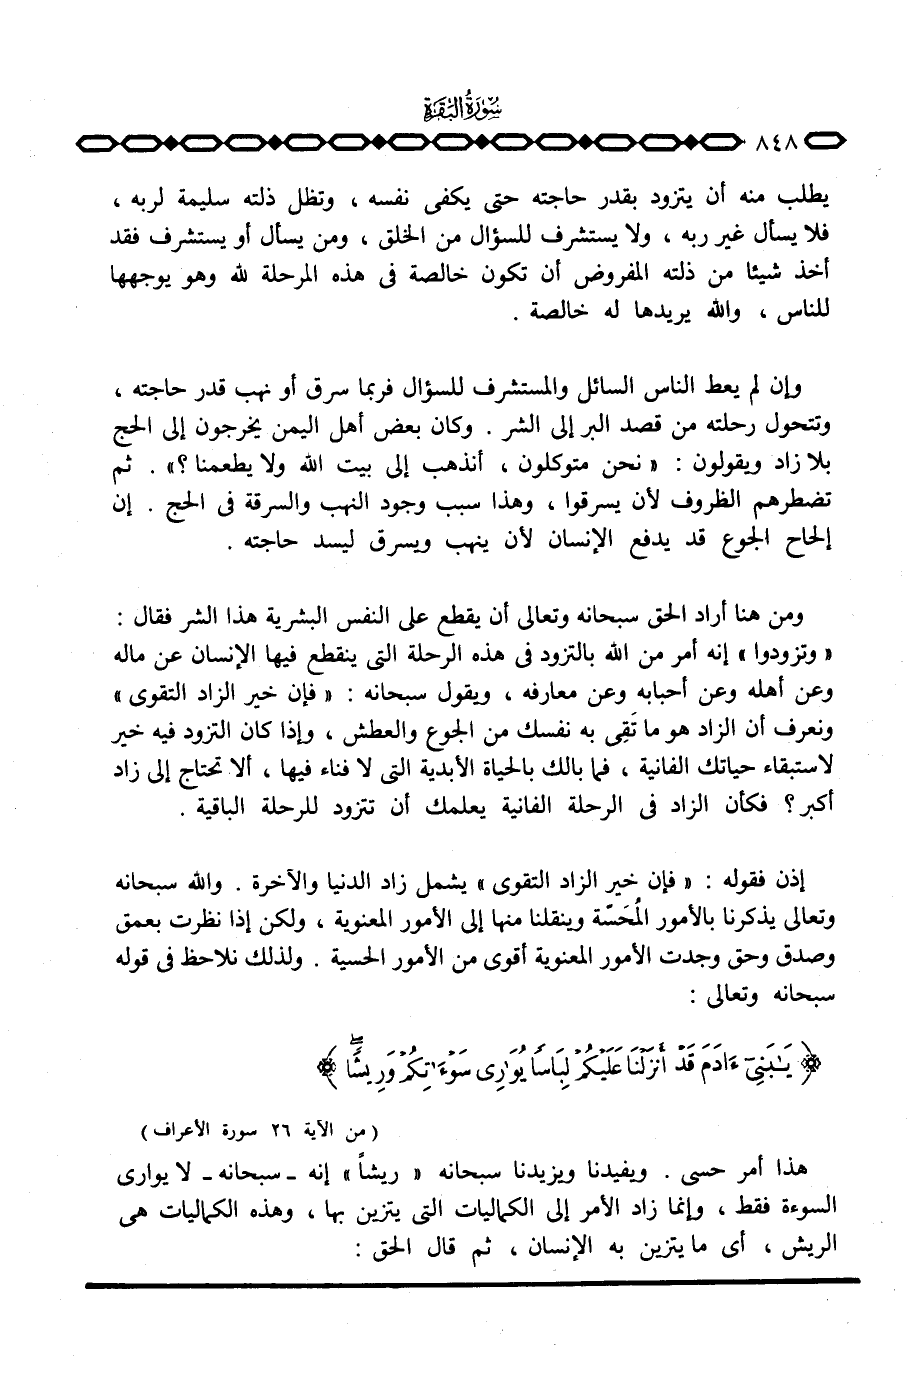 سورة البقرة
٨٤٨
يطلب منه أن يتزود بقدر حاجته حتى يكفى نفسه ، وتظل ذلته سليمة لربه ،
فلا يسأل غير ربه ، ولا يستشرف للسؤال من الخلق ، ومن يسأل أو يستشرف فقد
أخذ شيئا من ذلته المفروض أن تكون خالصة فى هذه المرحلة لله وهو يوجهها
للناس ، والله يريدها له خالصة .
وإن لم يعط الناس السائل والمستشرف للسؤال فربما سرق أو نهب قدر حاجته ،
وتتحول رحلته من قصد البر إلى الشر . وكان بعض أهل اليمن يخرجون إلى الحج
بلا زاد ويقولون : « نحن متوكلون ، أنذهب إلى بيت الله ولا يطعمنا ؟» . ثم
تضطرهم الظروف لأن يسرقوا ، وهذا سبب وجود النهب والسرقة فى الحج . إن
إلحاح الجوع قد يدفع الإنسان لأن ينهب ويسرق ليسد حاجته .
ومن هنا أراد الحق سبحانه وتعالى أن يقطع على النفس البشرية هذا الشر فقال :
« وتزودوا » إنه أمر من الله بالتزود فى هذه الرحلة التى ينقطع فيها الإنسان عن ماله
وعن أهله وعن أحبابه وعن معارفه ، ويقول سبحانه : « فإن خير الزاد التقوى »
ونعرف أن الزاد هو ما تَقِى به نفسك من الجوع والعطش ، وإذا كان التزود فيه خير
لاستبقاء حياتك الفانية ، فما بالك بالحياة الأبدية التى لا فناء فيها ، ألا تحتاج إلى زاد
أكبر ؟ فكأن الزاد فى الرحلة الفانية يعلمك أن تتزود للرحلة الباقية .
إذن فقوله : « فإن خير الزاد التقوى » يشمل زاد الدنيا والآخرة . والله سبحانه
وتعالى يذكرنا بالأمور المُحَسّة وينقلنا منها إلى الأمور المعنوية ، ولكن إذا نظرت بعمق
وصدق وحق وجدت الأمور المعنوية أقوى من الأمور الحسية . ولذلك نلاحظ فى قوله
سبحانه وتعالى :
﴿ يَـٰبَنِىٓ ءَادَمَ قَدْ أَنزَلْنَا عَلَيْكُمْ لِبَاسًا يُوَٰرِى سَوْءَٰتِكُمْ وَرِيشًا ۖ ﴾
( من الآية ٢٦ سورة الأعراف )
هذا أمر حسى . ويفيدنا ويزيدنا سبحانه « ريشاً » إنه ـ سبحانه ـ لا يوارى
السوءة فقط ، وإنما زاد الأمر إلى الكماليات التى يتزين بها ، وهذه الكماليات هى
الريش ، أى ما يتزين به الإنسان ، ثم قال الحق :